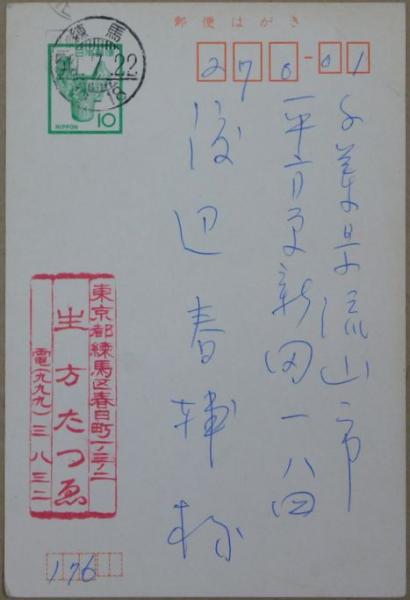 郵便はがき
練馬
7.22
18
NIPPON
10
270-01
千葉県流山市
平方原新田一八四
渡辺春輔様
東京都練馬区春日町一ノ三ノ二
生方たつゑ
電(九九九)三八三二
176